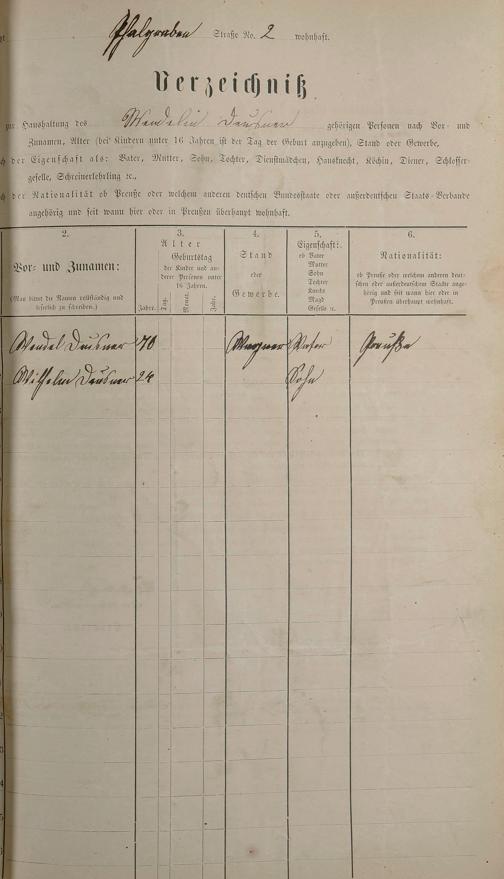 Pfalgraben Straße No. 2 wohnhaft.
Verzeichniß
zur Haushaltung des Wendelin Deusner gehörigen Personen nach Vor- und
Zunamen, Alter (bei Kindern unter 16 Jahren ist der Tag der Geburt anzugeben), Stand oder Gewerbe,
der Eigenschaft als: Vater, Mutter, Sohn, Tochter, Dienstmädchen, Hausknecht, Köchin, Diener, Schlosser-
geselle, Schreinerlehrling ꝛc.,
der Nationalität ob Preuße oder welchem anderen deutschen Bundesstaate oder außerdeutschen Staats-Verbande
angehörig und seit wann hier oder in Preußen überhaupt wohnhaft.
2.
Vor- und Zunamen:
(Man bittet die Namen vollständig und
leserlich zu schreiben.)
3.
Alter
Geburtstag
der Kinder und an-
derer Personen unter
16 Jahren.
Jahre.
Tag.
Monat.
Jahr.
4.
Stand
oder
Gewerbe.
5.
Eigenschaft:
ob Vater
Mutter
Sohn
Tochter
Knecht
Magd
Geselle ꝛc.
6.
Nationalität:
ob Preuße oder welchem anderen deut-
schen oder außerdeutschen Staate ange-
hörig und seit wann hier oder in
Preußen überhaupt wohnhaft.
Wendel Deusner 70 Wagner Vater Preuße
Wilhelm Deusner 24 Sohn